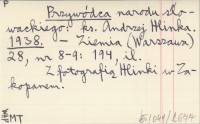 P
Przywódca narodu sło-
wackiego: ks. Andrzej Hlinka.
1938. - Ziemia (Warszawa)
28, nr 8-9: 194, il.
Z fotografią Hlinki w Za-
kopanem.
MT